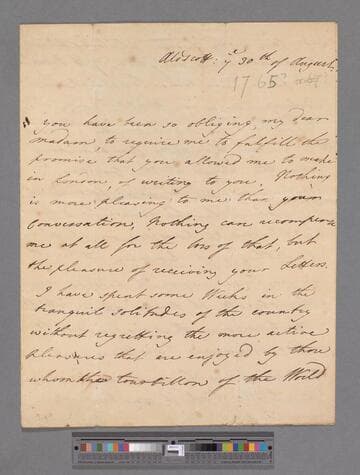 Aldscott: ye 30th of August
1765
you have been so obliging, my dear
madam, to require me to fulfill the
promise that you allowed me to make
in London, of writing to you, Nothing
is more pleasing to me than your
Conversation, Nothing can recompense
me at all for the loss of that, but
the pleasure of receiving your Letters.
I have spent some Weeks in the
tranquil solitudes of the country
without regretting the more active
pleasures that are enjoyed by those
whom the tourbillon of the World